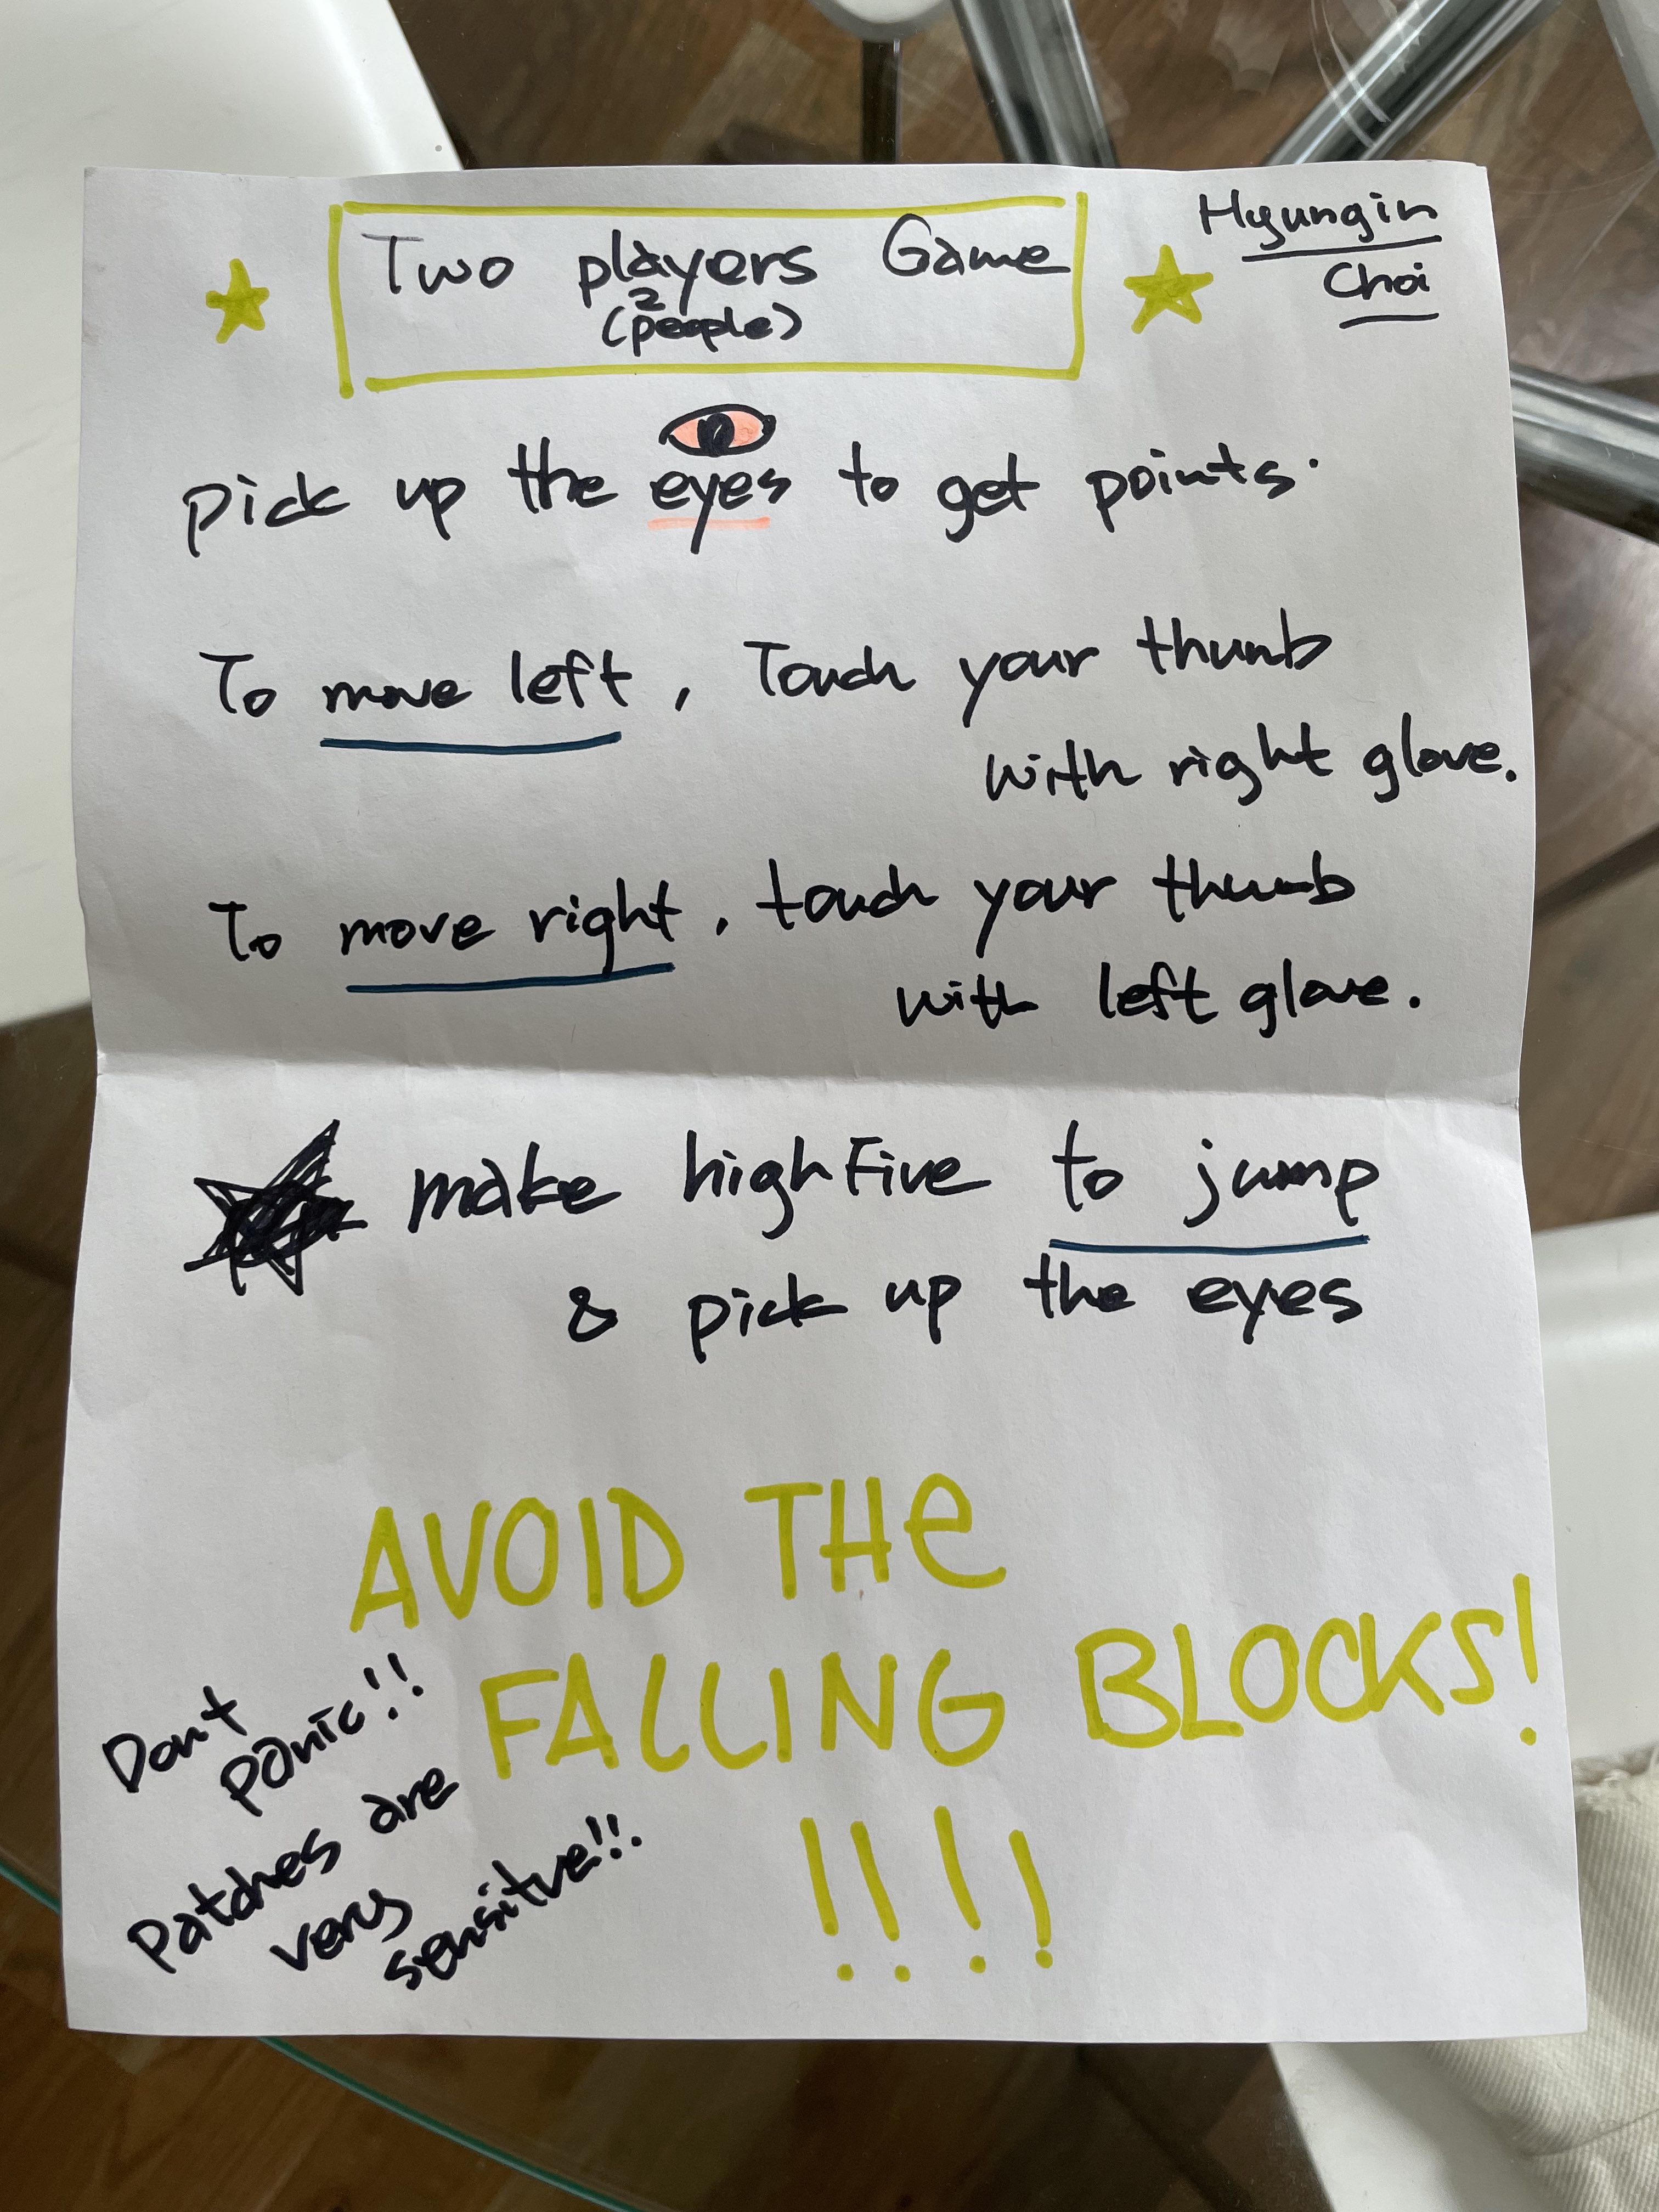 Two players Game
(2 people)
Hyungin
Choi
pick up the eyes to get points.
To move left, Touch your thumb
with right glove.
To move right, touch your thumb
with left glove.
make high Five to jump
& pick up the eyes
AVOID THe
FALLING BLOCKS!
!!!!
Dont
panic!!
Patches are
very
sensitve!!.